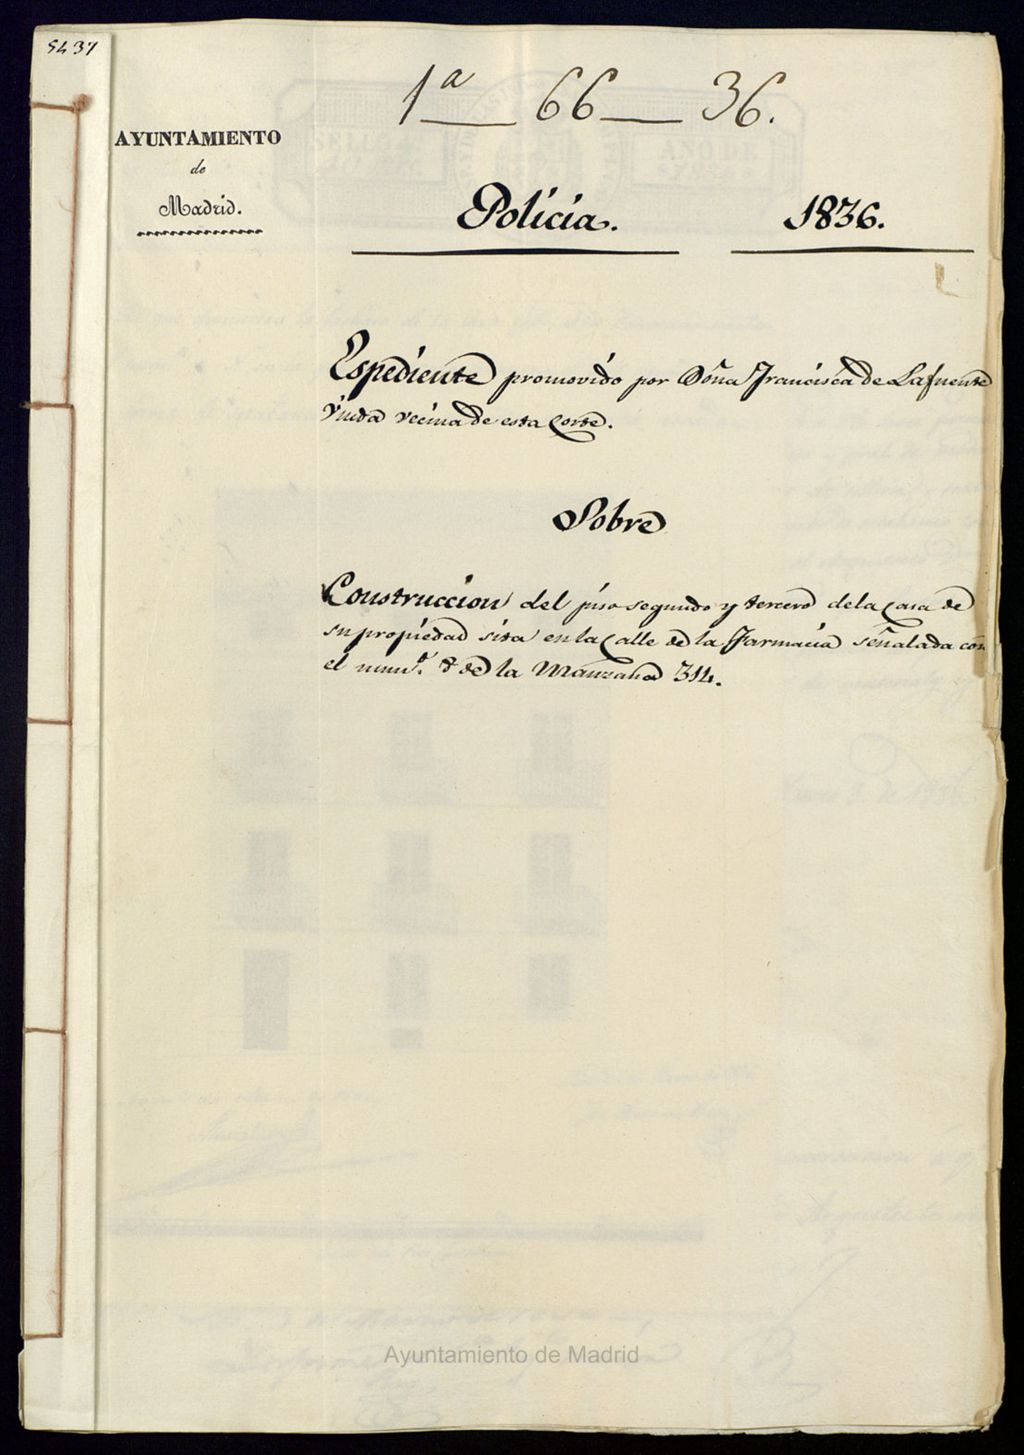 5437
1ª 66 36.
AYUNTAMIENTO
de
Madrid.
Policia. 1836.
Espediente promovido por Doña Francisca de Lafuente
viuda vecina de esta Corte.
Sobre
Construccion del piso segundo y tercero de la Casa de
su propiedad sita en la Calle de la Farmacia señalada con
el num.º 8 de la Manzana 314.
Ayuntamiento de Madrid